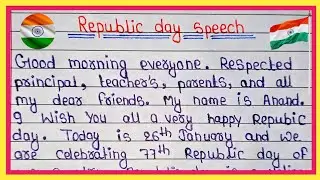 Republic day speech
Good morning everyone. Respected
principal, teacher's, parents, and all
my dear friends. My name is Anand.
I wish you all a very happy Repubic
day. Today is 26th January and we
are celebrating 77th Republic day of